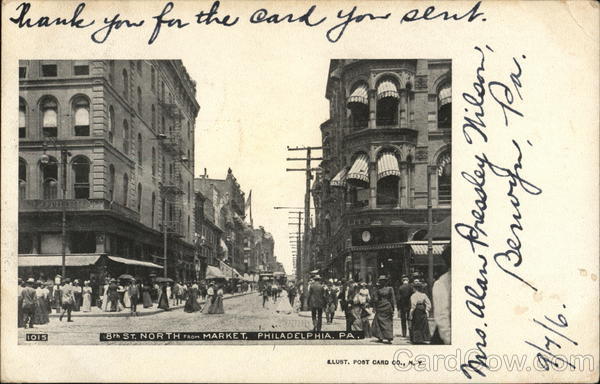 Thank you for the card you sent.
Mrs. Alan Pressley Wilson,
Berwyn, Pa.
9/7/6.
1015
8th ST. NORTH FROM MARKET, PHILADELPHIA, PA.
ILLUST. POST CARD CO., N. Y.
CardCow.com